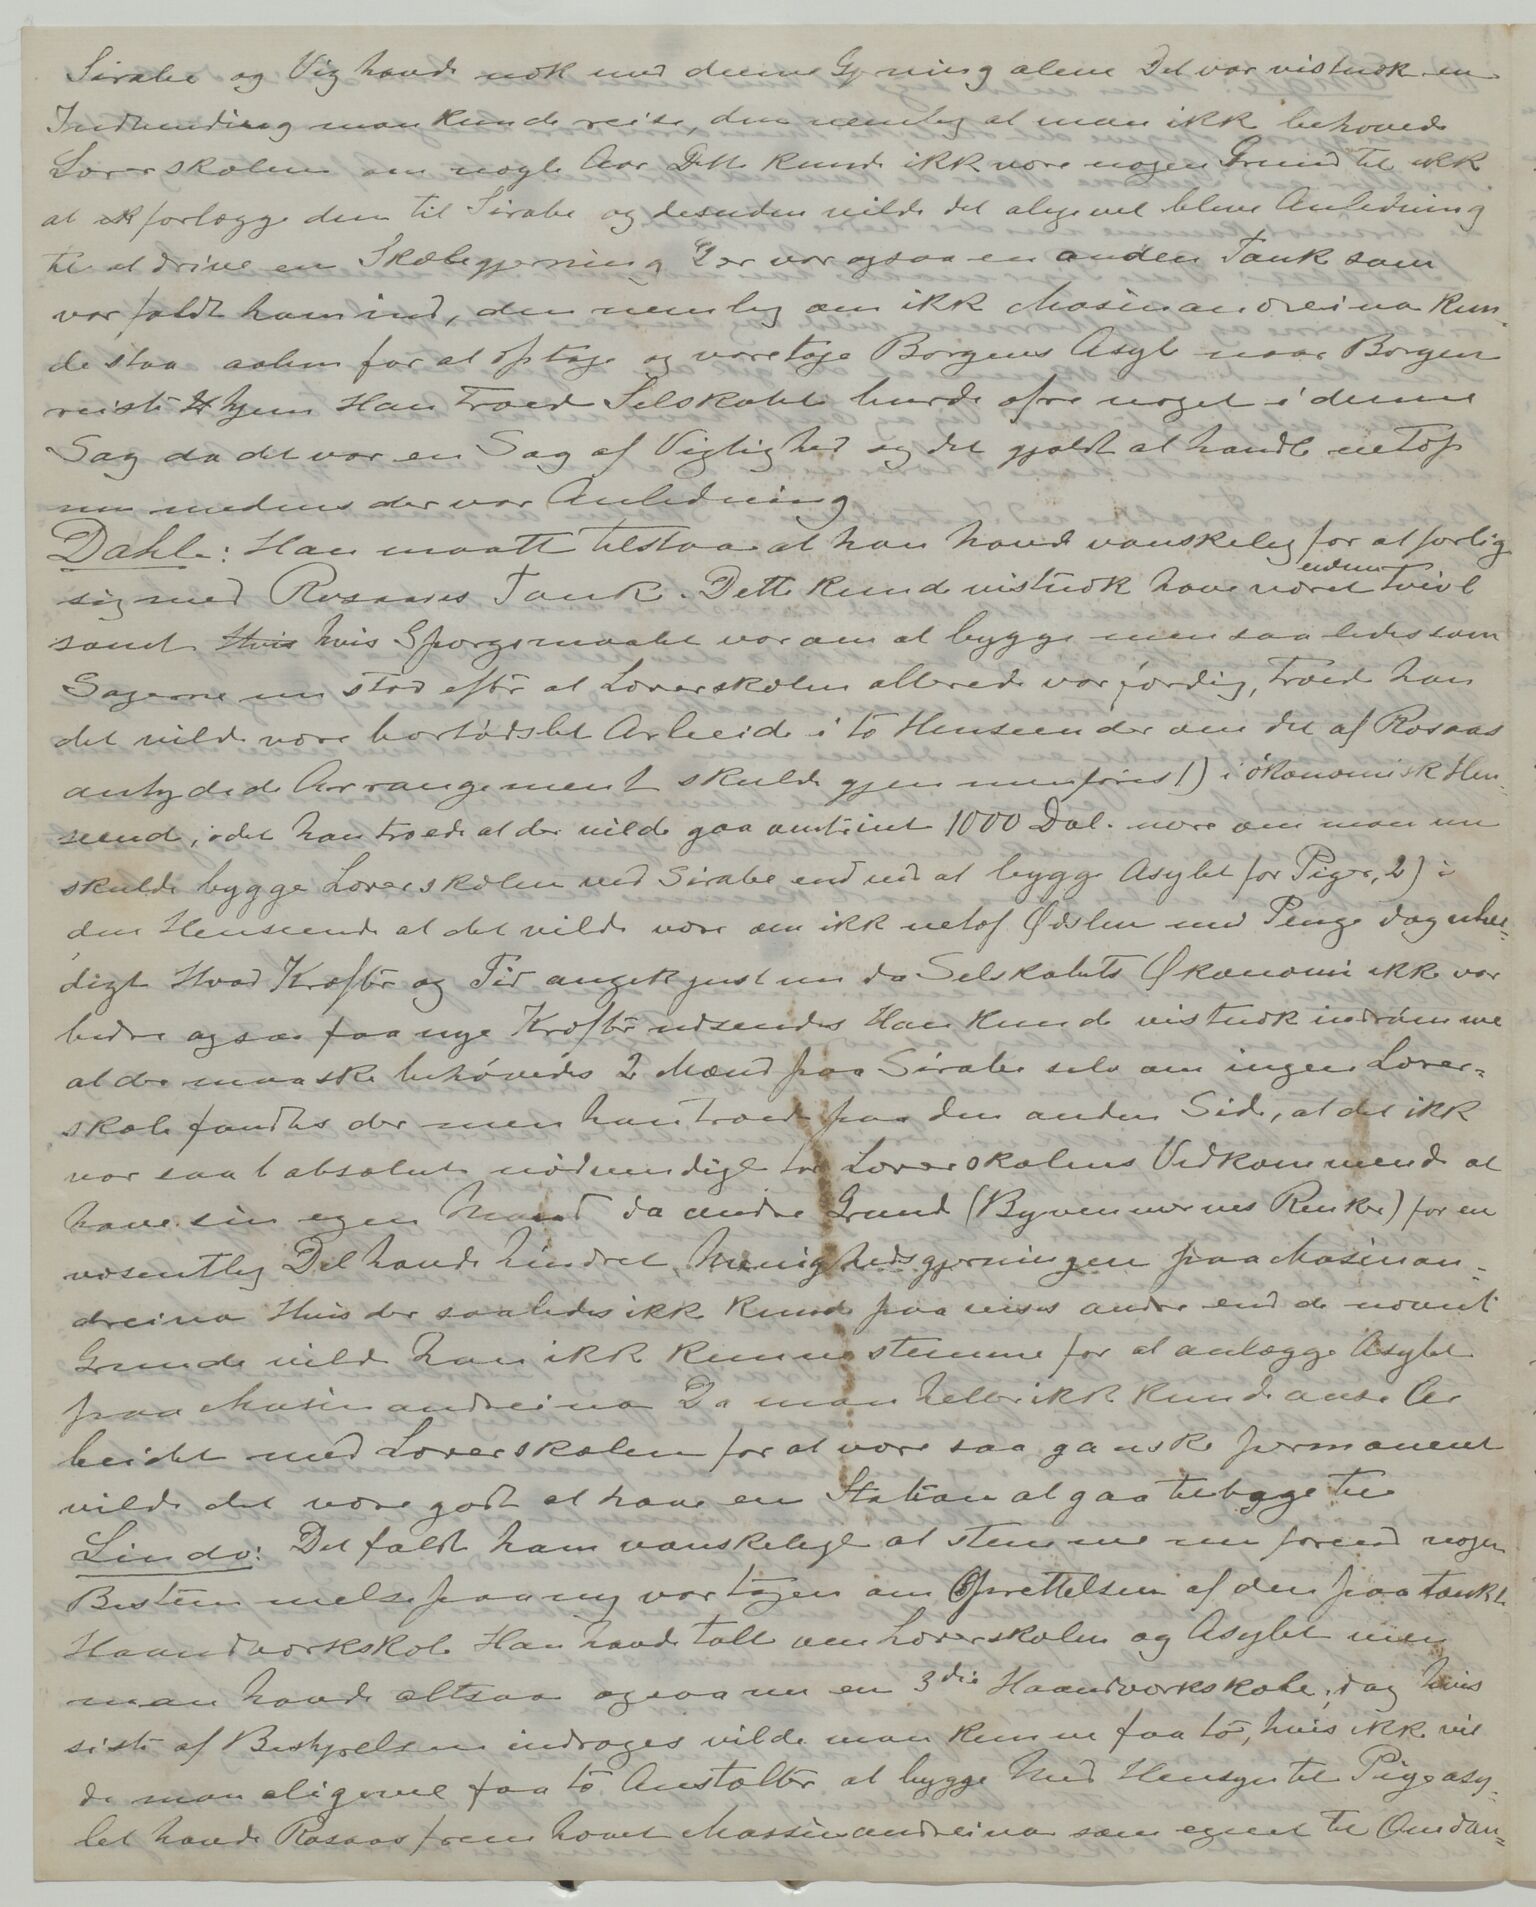 Sirabe og Vig havde nok med denne Gjerning alene Det var vistnok en
Indvending man kunde reise, den nemlig at man ikk behøvede
Lærerskolen om nogle Aar Dette kunde ikk være nogen Grund til ikk
at forlægge den til Sirabe og desuden vilde det aligevel blive Anledning
til at drive en Skolegjerning Der var ogsaa en anden Tank som
var faldt ham ind, den nemlig om ikk Masinandreina kun-
de staa aaben for at optage og varetage Borgens Asyl naar Borgen
reiste hjem Han troed Selskabet burde ofre noget i denne
Sag da det var en Sag af Vigtighed og det gjaldt at handle netop
nu medens der var Anledning
Dahle: Han maatte tilstaa at han havde vanskelig for at forlig
sig med Rosaas Tank. Dette kunde vistnok have været endnu tvivl
somt Hvis hvis Spørgsmaalet var om at bygge men saaledes som
Sagerne nu stod efter at Lærerskolen allerede var færdig, troed han
det vilde være bortødslet Arbeide i to Henseender om det af Rosaas
antydede Arrangement skulde gjennemføres 1) i økonomisk Hen-
seend, idet han troede at der vilde gaa omtrint 1000 Dal. mere om man nu
skulde bygge Lærerskolen ved Sirabe end ved at bygge Asylet for Piger, 2) i
den Henseende at det vilde være om ikk netop Ødslen med Penge dog uhel-
digt Hvad Kræfter og Tid angik just nu da Selskabets Økonomi ikke var
bedre ogsaa faa nye Kræfter udsendes Han kunde vistnok indrømme
at der maaske behøvedes 2 Mænd paa Sirabe selv om ingen Lærer-
skole fandtes der men han troed paa den anden Side, at det ikk
var saa absolut nødvendigt for Lærerskolens Vedkommend at
have sin egen Mand da andre Grund (Byvennernes Renker) for en
væsentlig Del havde hindret Menighedsgjerningen paa Masinan-
dreina Hvis der saaledes ikk kunde paavises andre end de nævnt
Grunde vilde han ikk kunne stemme for at anlægge Asylet
paa Masinandreina Da man heller ikk kunde anse Ar
beidet med Lærerskolen for at være saa ganske permanent
vilde det være godt at have en Station at gaa tilbage til
Lindø: Det faldt ham vanskeligt at stemme nu førend nogen
Bestemmelse paany var tagen om Oprettelsen af den paatænkt
Haandværkskole Han havde talt om Lærerskolen og Asylet men
man havde altsaa ogsaa nu en 3die Haandværkskole, dog hvis
siste af Bestyrelsen inddroges vilde man kunne faa to, hvis ikk vil
de man aligevel faa to Anstalter at bygge Med Hensyn til Pigeasy-
let havde Rosaas fremhævet Massinandreina som egnet til Omdan-